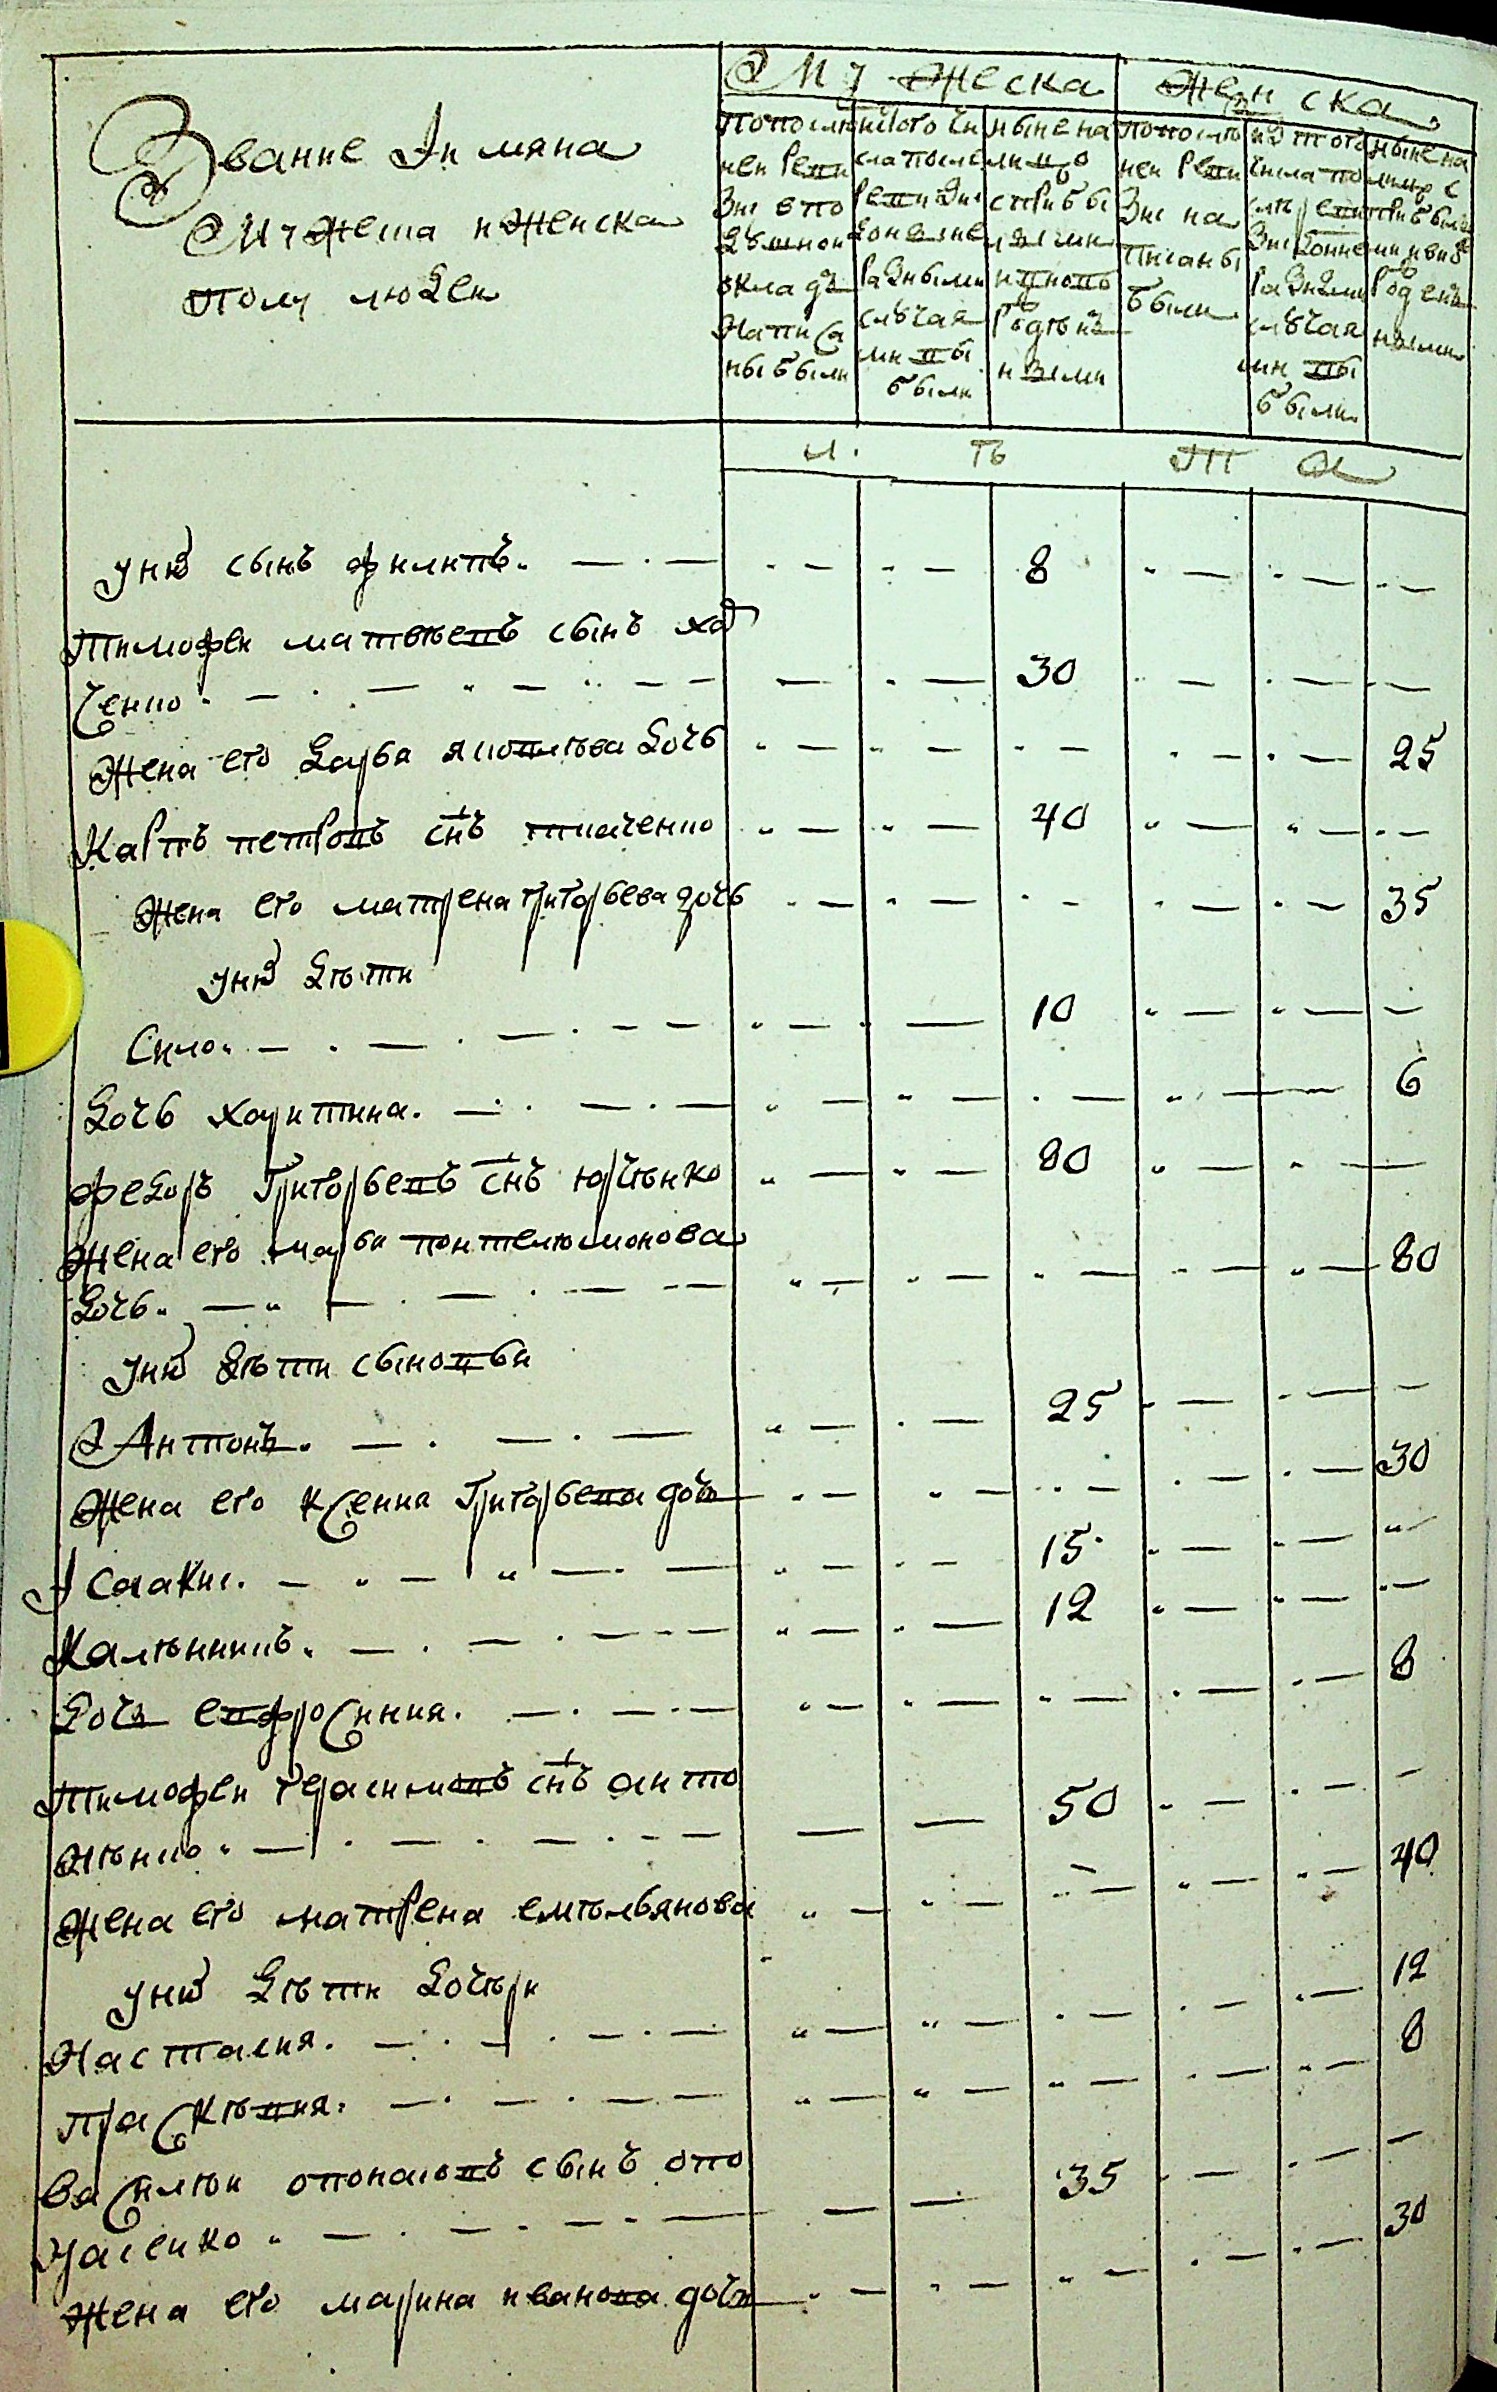 Звание Имяна
Мужеска и Женска
полу людей
Мужеска
Женска
По после
ней реви
зие в по
душной
окладъ
Написа
ны были
ис того чи
сла после
ревизии
разными
случая
ми вы
были
ныне на
лицо
с прибы
лыми
и вновь
рожден
ными
По после
ней реви
зие на
писаны
были
из того
числа по
разными
случая
ми вы
были
ныне на
лицо с
прибылы
ми
рожден
ными
л. ѣ т а
у них сынъ филипъ. 8
Тимофей матвеевъ сынъ
ченко 30
Жена его дочь 25
Карпъ петровъ снъ ткаченко 40
Жена его матрена григорьева дочь 35
у них дѣти
10
дочь харитина. 6
федоръ Григорьевъ снъ юрченко 80
Жена его марфа понтелюмонова
дочь. 80
у них дѣти сыновьи
Антонъ. 25
Жена его Ксения Григорьева дочь 30
Исаакие. 15
Калѣникъ. 12
дочь евфросиния. 8
Тимофей герасимовъ снъ анто
ненко 50
Жена его матрена емельянова 40
у них дѣти дочери
Насталия. 12
прасковия. 8
Василей опонасовъ сынъ опо
насенко 35
Жена его марина иванова дочь 30